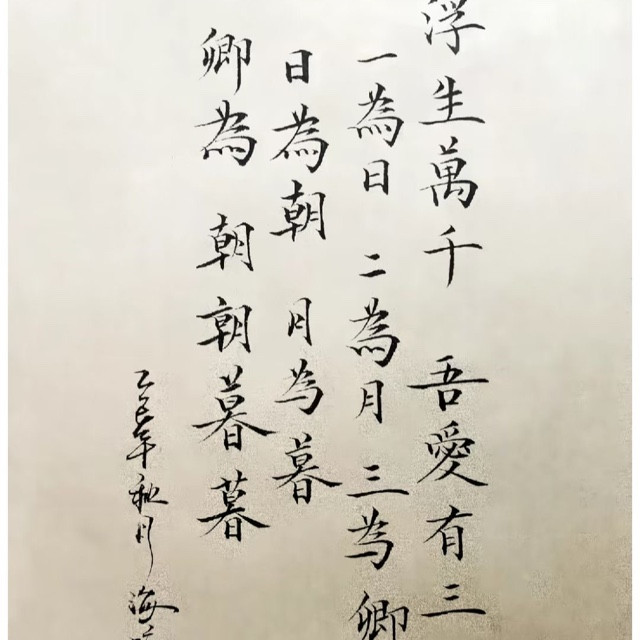 浮生萬千 吾愛有三
一為日 二為月 三為卿
日為朝 月為暮
卿為 朝朝暮暮
乙巳年秋月 海